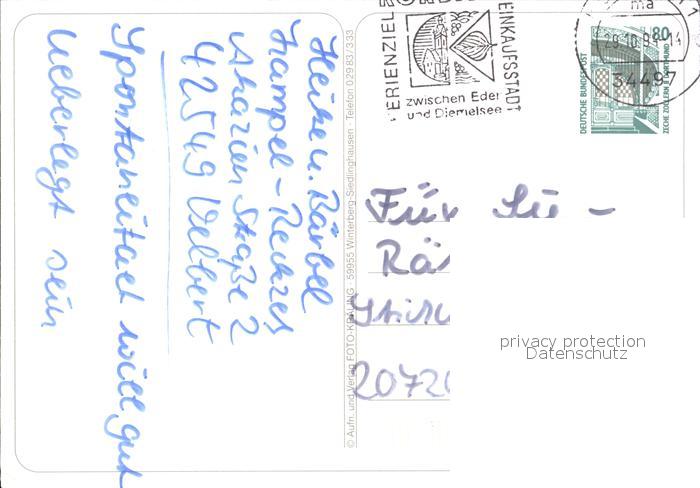 Heike u. Bärbel
Hampel-
Akazien Straße 2
42549 Velbert
Spontaneitaet will gut
ueberlegt sein
© Aufn. und Verlag FOTO-KRÖLING · 59955 Winterberg-Siedlinghausen · Telefon 02983/333
FERIENZIEL
EINKAUFSSTADT
zwischen Eder
und Diemelsee
ma
34497
80
DEUTSCHE BUNDESPOST
ZECHE ZOLLERN II DORTMUND
Für Sie -
privacy protection
Datenschutz